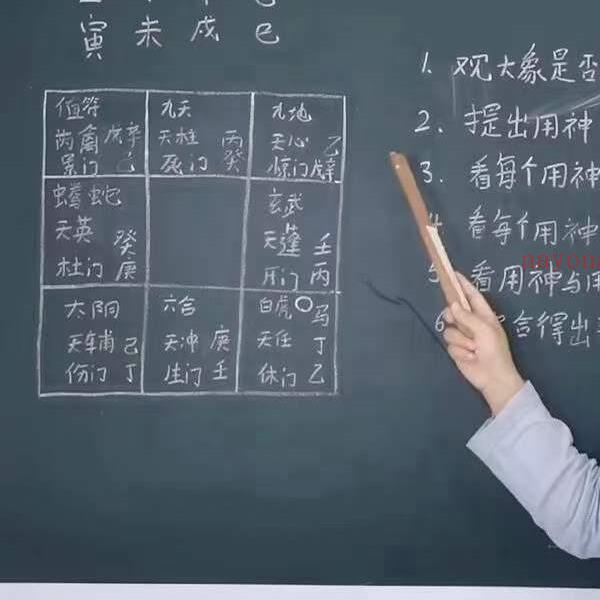 寅 未 戌 巳
值符
芮禽 戊辛
景门 己
九天
天柱 丙
死门 癸
九地
天心 乙
惊门 戊辛
螣蛇
天英 癸
杜门 庚
玄武
天蓬 壬
开门 丙
太阴
天辅 己
伤门 丁
六合
天冲 庚
生门 壬
白虎〇马
天任 丁
休门 乙
1. 观大象是否
2. 提出用神
3. 看每个用神
4 看每个用神
5 看用神与用
6 得出